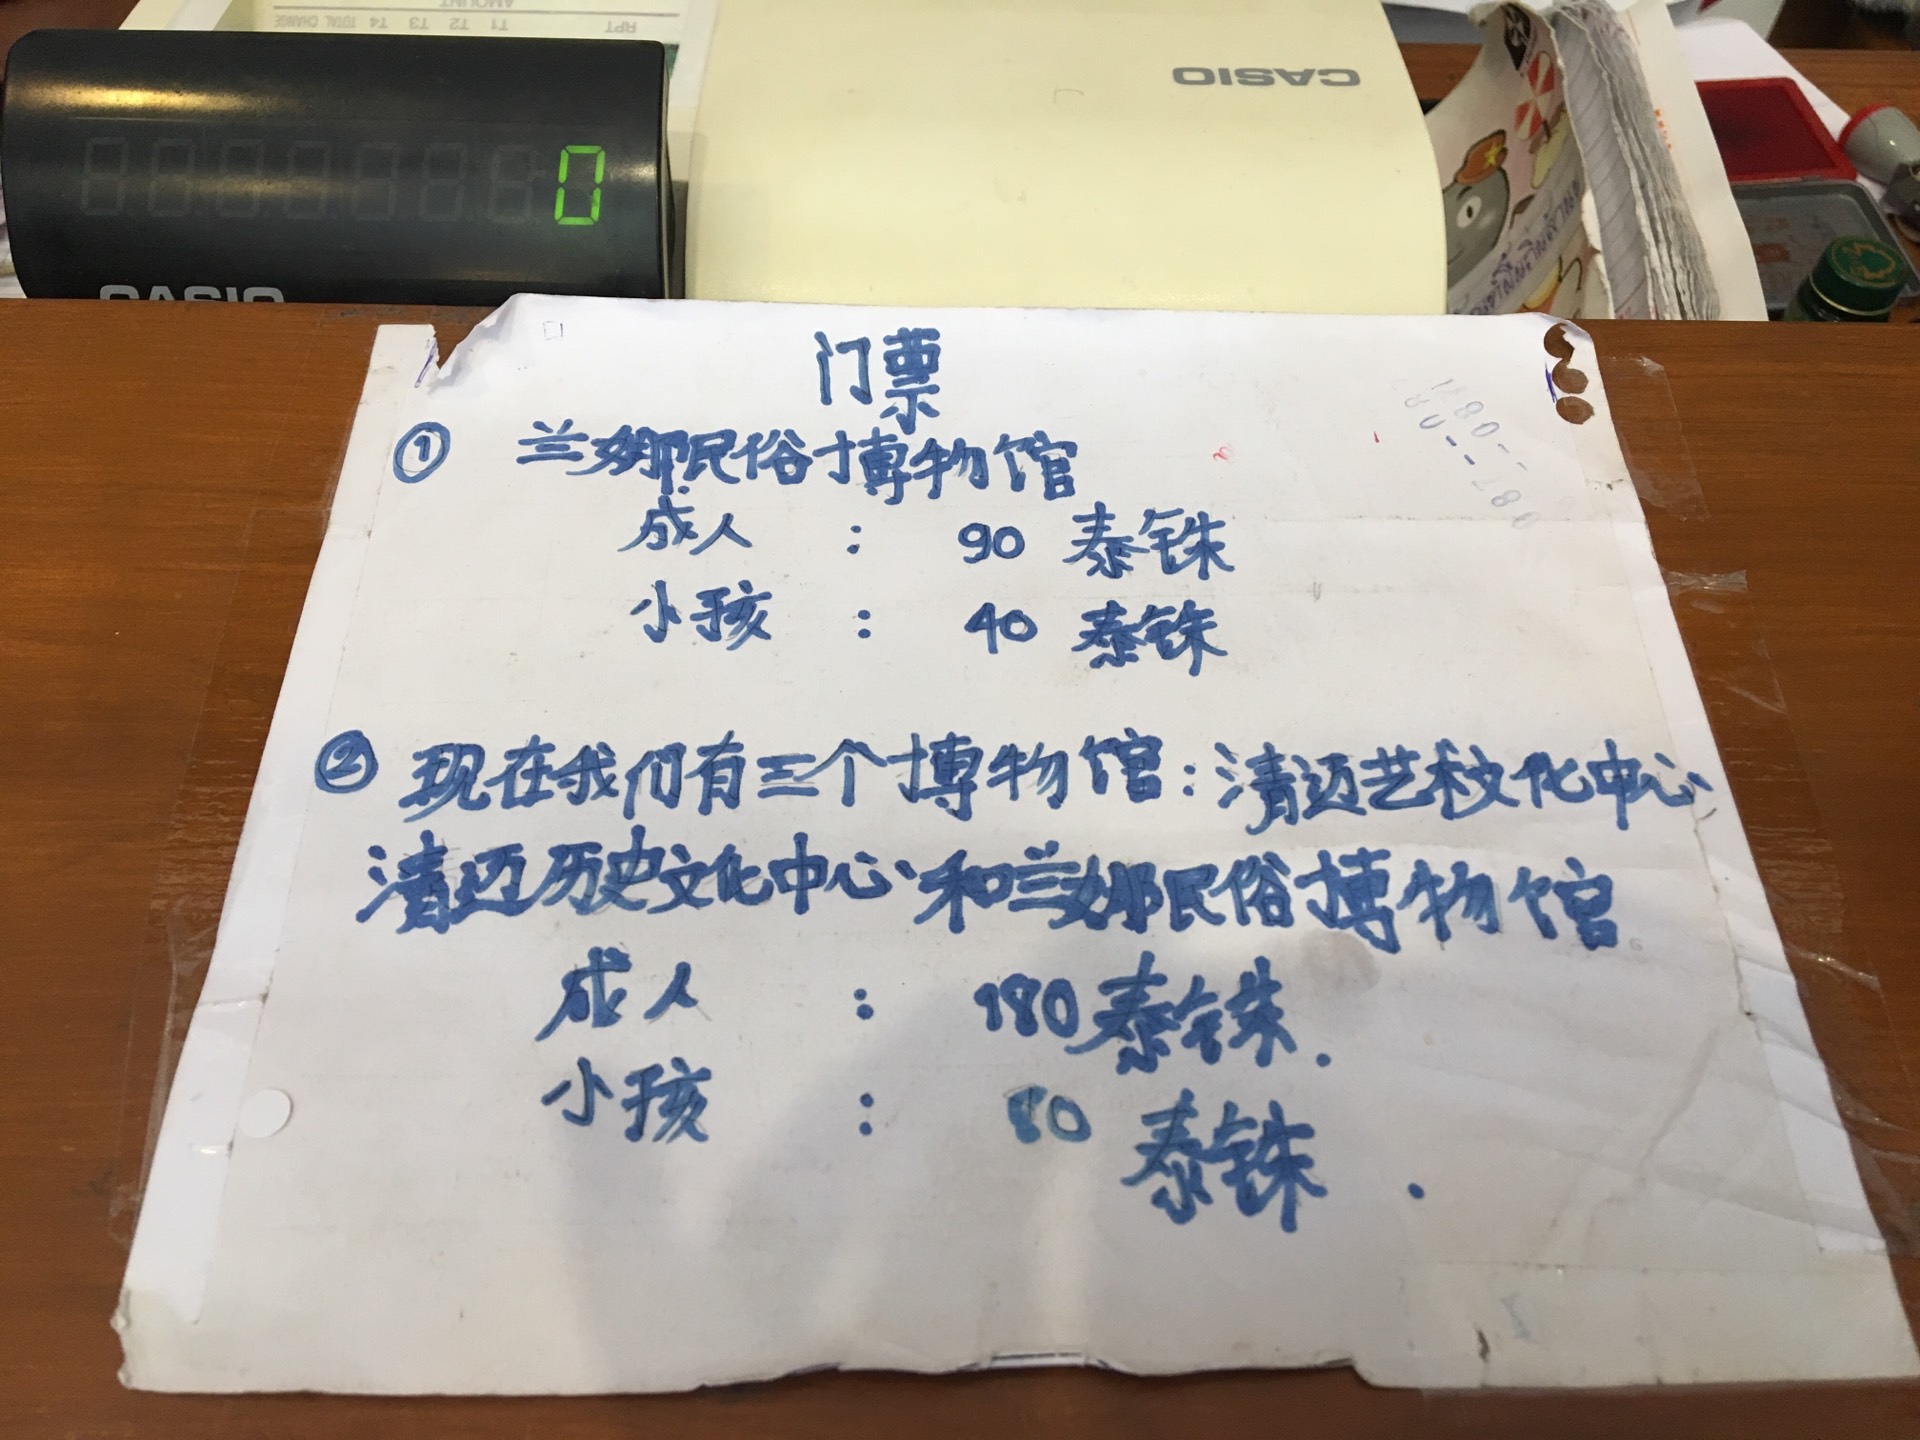 RPT T1 T2 T3 T4 TOTAL CHANGE
AMOUNT
CASIO
0
CASIO
门票
① 兰娜民俗博物馆
成人 : 90 泰铢
小孩 : 40 泰铢
② 现在我们有三个博物馆:清迈艺术文化中心
清迈历史文化中心、和兰娜民俗博物馆
成人 : 180 泰铢.
小孩 : 80 泰铢.